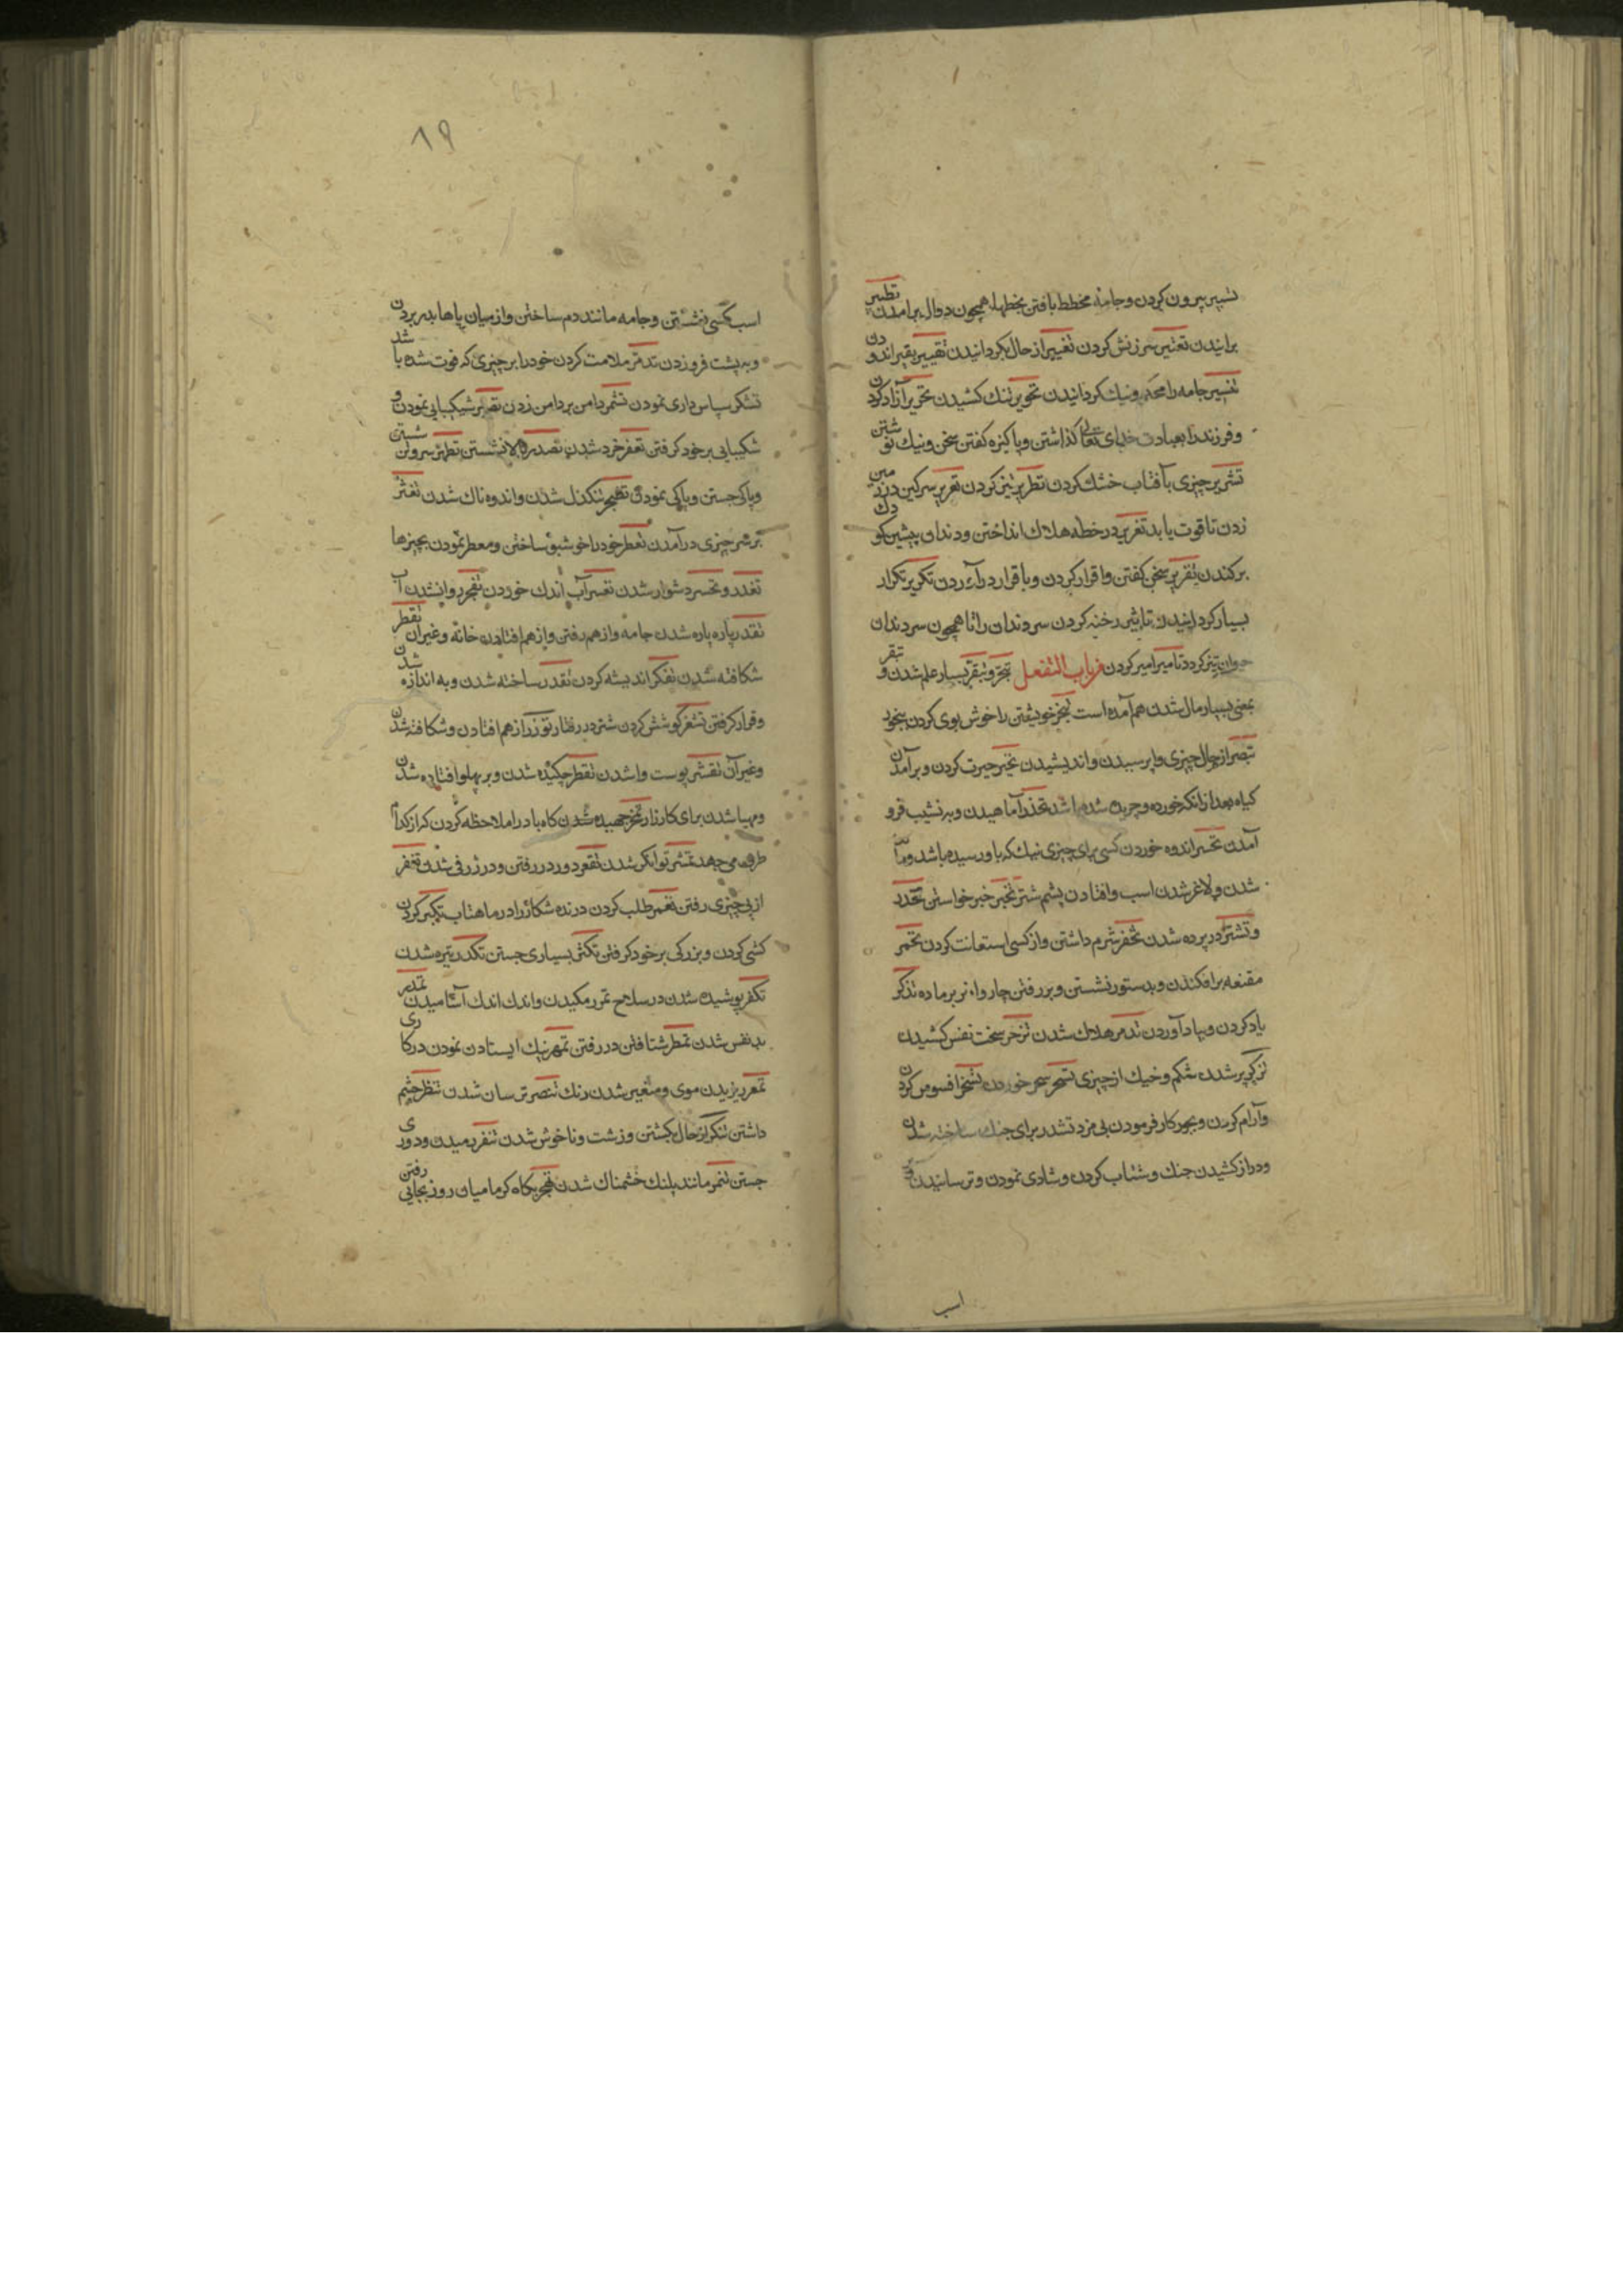 تسییر بیرون کردن و جامه مخطط بافتن بخطها همچون دوال برآمدن تطییر
برانیدن تعییر سرزنش کردن تغییر از حال بگردانیدن تقییر بقیر اندودن
تنییر جامه را محکم و نیک گردانیدن تحریر تنک کشیدن تحریر آزاد کردن
و فرزند را بعبادت خدای تعالی گذاشتن و پاکیزه گفتن سخن و نیک نوشتن
تشریر چیزی بآفتاب خشک کردن تطریر تیز کردن تعریر سرکین در زمین
زدن تا قوت یابد تغریر در خطر هلاک انداختن و دندان پیشین کودک
برکندن تقریر سخن گفتن و اقرار کردن و باقرار درآوردن تکریر تکرار
بسیار گردانیدن تاشیر رخنه کردن سر دندان را تا همچون سر دندان
جوان تیز گردد تامیر امیر کردن من باب التفعل تبحر و تبقر بسیار علم شدن و تبقر
بمعنی بسیار مال شدن هم آمده است تبخر خویشتن را خوش بوی کردن ببخور
تبصر از حال چیزی واپرسیدن و اندیشیدن تحیر حیرت کردن و برآمدن
کیاه بعد از انکه خورده و چریده شده باشد تحدر آماهیدن و به نشیب فرو
آمدن تحسر اندوه خوردن کسی برای چیزی نیک که باو رسیده باشد و
شدن و لاغر شدن اسب و افتادن پشم شتر تخبر خبر خواستن تخدر
و تستر در پرده شدن تخفر شرم داشتن و از کسی استعانت کردن تخمر
مقنعه برافکندن و بدستور نشستن و بررفتن چاروا نر بر ماده تذکر
یاد کردن و بیاد آوردن تدمر هلاک شدن تزحر سخت نفس کشیدن
تزکر پر شدن شکم و خیک از چیزی تسحر سحر خوردن تسخر افسوس کردن
و آرام کردن و بجور کار فرمودن بی مزد تشدر برای جنک ساخته شدن
و دراز کشیدن جنک و شتاب کردن و شادی نمودن و ترسانیدن و
اسب
۸۹
اسب کسی نشستن و جامه مانند دم ساختن و از میان پاها بدر بردن
و به پشت فرو زدن تدمر ملامت کردن خود را بر چیزی که فوت شده باشد
تشکر سپاس داری نمودن تشمر دامن بر دامن زدن تصبر شیکیبایی نمودن و
شکیبایی بر خود گرفتن تصغر خرد شدن تصدر بالا نشستن تطهر سر و تن شستن
و پاکی جستن و پاکی نمودن تضجر تنکدل شدن و اندوه ناک شدن تعثر
بر سر چیزی درآمدن تعطر خود را خوشبو ساختن و معطر نمودن بچیزها
تعذر و تعسر دشوار شدن تغمر آب اندک خوردن تفجر روان شدن آب
تفزر پاره پاره شدن جامه و از هم رفتن و از هم افتادن خانه و غیر آن تفطر
شکافته شدن تفکر اندیشه کردن تقدر ساخته شدن و به اندازه شدن
و قرار گرفتن تشغر کوشش کردن شتر در رفتار تقور از هم افتادن و شکافته شدن
و غیر آن تقشر پوست واشدن تقطر چکیده شدن و بر پهلو افتاده شدن
و مهیا شدن برای کارزار تمخر جهیده شدن کاه باد را ملاحظه کردن که از کدام
طرف می جهد تمشر توانگر شدن تقعر دور در رفتن و در ژرفی شدن تقفر
از پی چیزی رفتن تقمر طلب کردن درنده شکار را در ماهتاب تکبر کردن
کشی کردن و بزرگی بر خود گرفتن تکثر بسیاری جستن تکدر تیره شدن
تکفر پوشیده شدن در سلاح تمزر مکیدن و اندک اندک آشامیدن تمذر
بد نفس شدن تمطر شتافتن در رفتن تمهر نیک ایستادن نمودن در کاری
تمعر ریزیدن موی و متغیر شدن رنک تنصر ترسان شدن تنظر چشم
داشتن تنکر از حال بگشتن و زشت و ناخوش شدن تنفر رمیدن و دوری
جستن تنمر مانند پلنک خشمناک شدن تهجر بگاه گرما میان روز بجایی رفتن